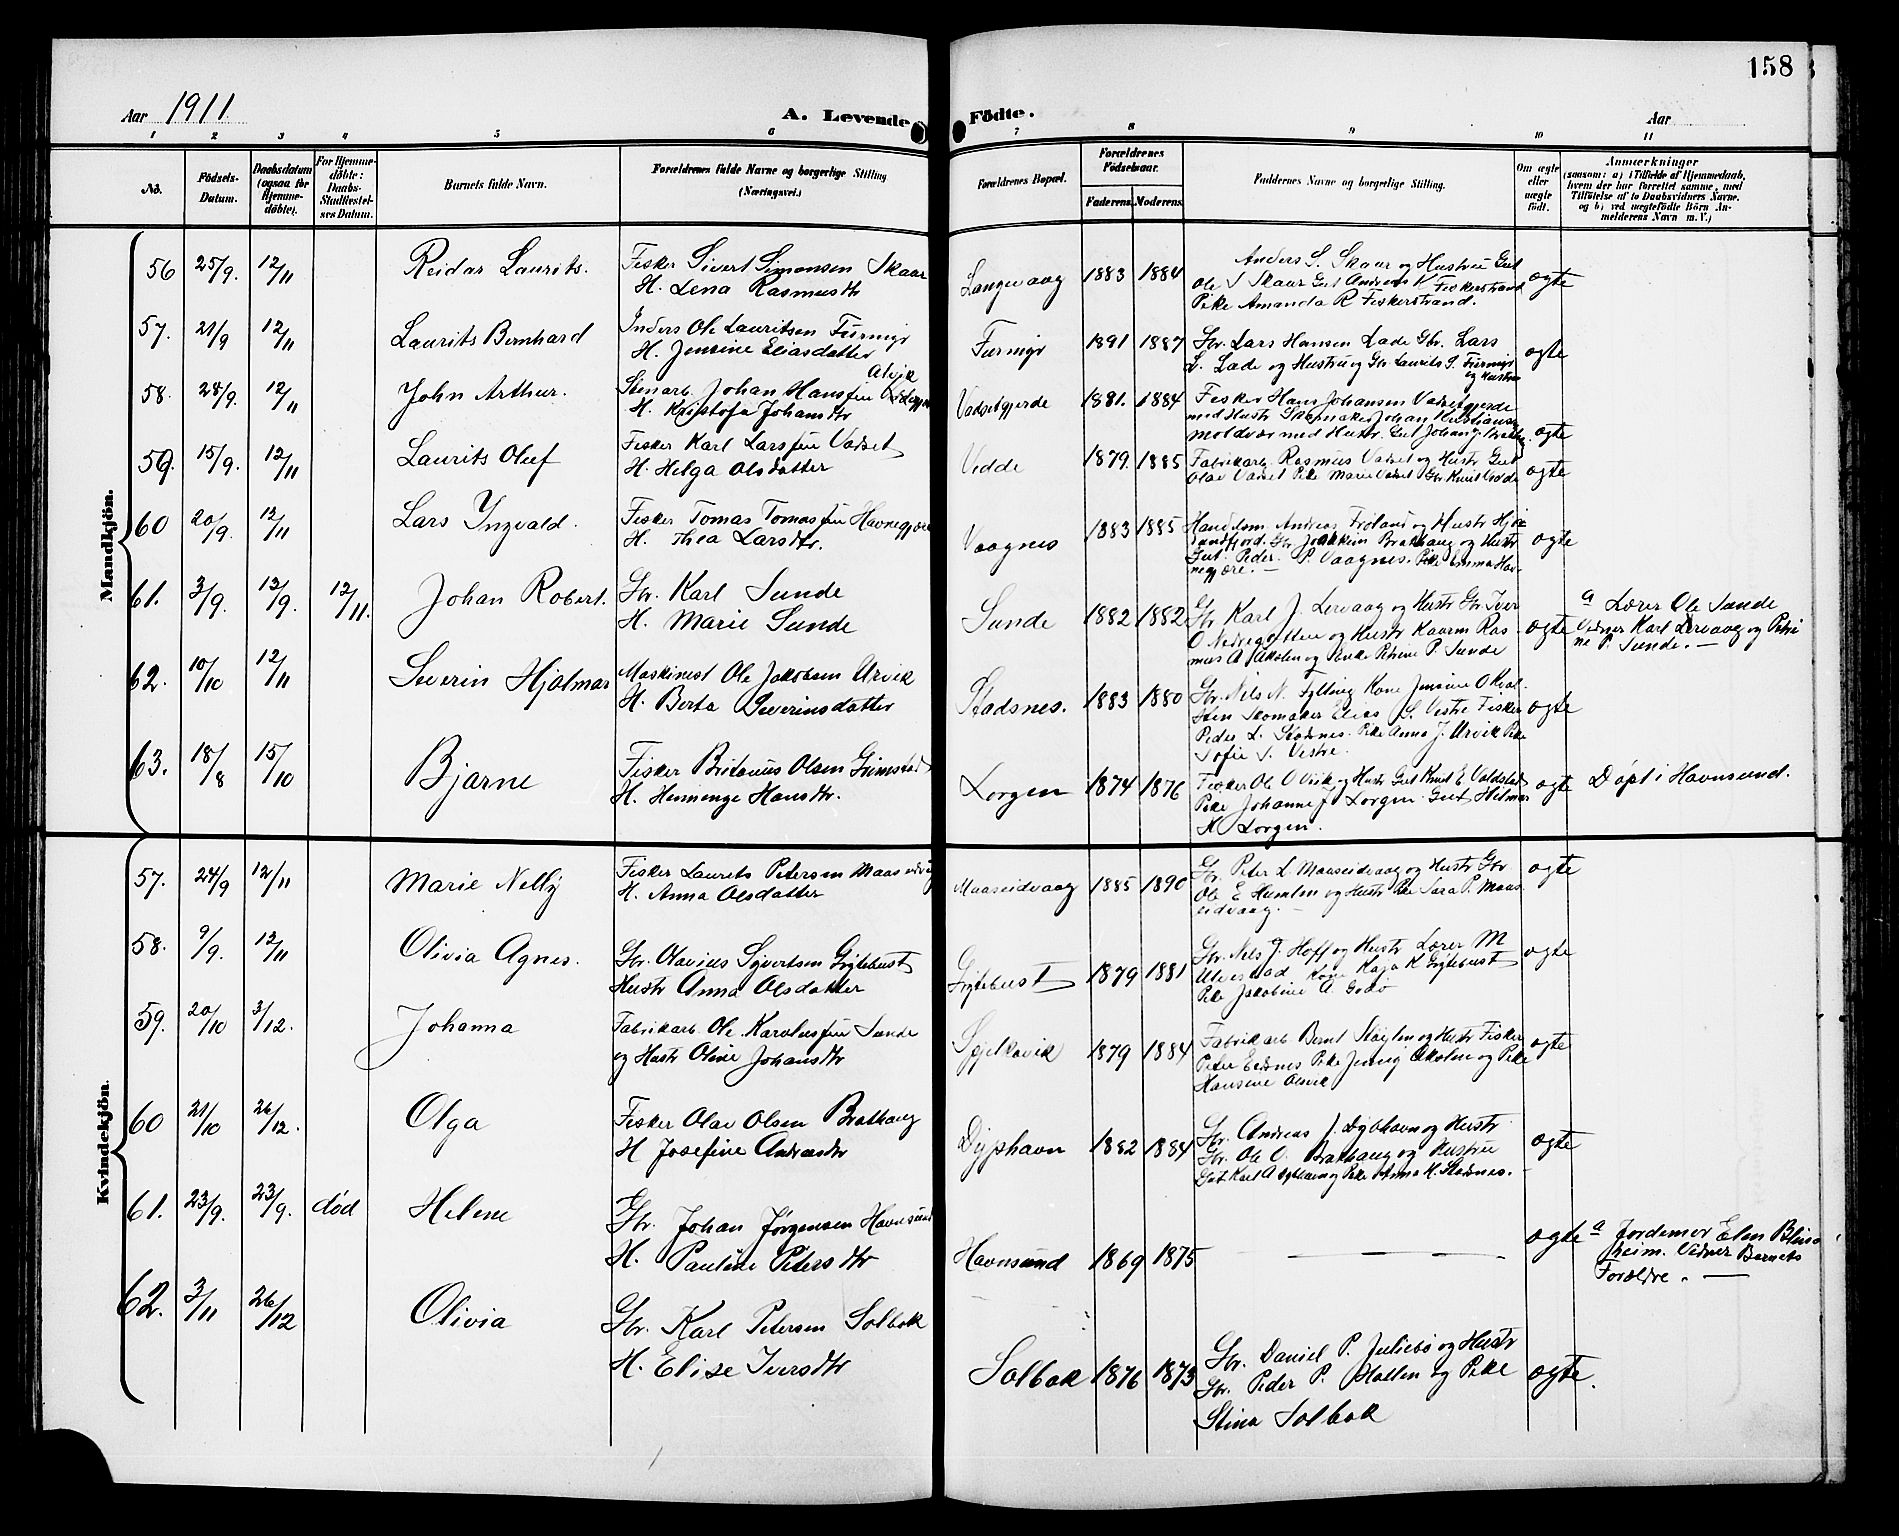 158
Aar 1911
A. Levende Födte.
Aar
1 2 3 4 5 6 7 8 9 10 11
No. Födsels-Datum. Daabsdatum (ogsaa for Hjemme-döbte). For Hjemme-döbte: Daabs-Stadfæstel-ses Datum. Barnets fulde Navn. Forældrenes fulde Navne og borgerlige Stilling (Næringsvei.) Forældrenes Bopæl. Forældrenes Födselsaar. Faderens. Moderens. Faddernes Navne og borgerlige Stilling. Om ægte eller uægte födt. Anmærkninger (saasom: a) i Tilfælde af Hjemmedaab, hvem der har forrettet samme, med Tilföielse af to Daabsvidners Navne. og b) ved uægtefödte Börn Anmelderens Navn m. V.)
Mandkjön.
56 25/9. 12/11 Reidar Laurits. Fisker Sivert Simonsen Skaar
H. Lena Rasmusdtr
Langevaag 1883 1884 Anders S. Skaar og Hustru Gut
Ole S Skaar Gut Andreas K Fiskerstrand
Pike Amanda R Fiskerstrand. ægte
57. 21/9 12/11 Laurits Bernhard Inders Ole Lauritsen Furmyr
H. Jensine Eliasdatter
Furmyr 1891 1887 Gbr. Lars Hansen Lade Gbr. Lars
L. Lade og Hustru og Gbr Laurits S. Furmyr
og Hustru ægte
58. 28/9. 12/11 John Arthur. Stenarb. Johan Hansen
Alvik
H. Kristofa Johansdtr
Vadsetgjerde 1881. 1884 Fisker Hans Johansen Vadsetgjerde
med Hustr Skomaker Johan Kristiansen
Moldvær med Hustr. Gut Johan ægte
59. 15/9. 12/11 Laurits Oluf Fisker Karl Larssen Vadset
H. Helga Olsdatter
Vedde 1879. 1885 Fabrikarb. Rasmus Vadset og Hustr Gut
Olav Vadset Pike Marie Vadset Gbr Knut Vedde ægte
60 20/9. 12/11 Lars Yngvald. Fisker Tomas Tomassen Havnegjære
H. Thea Larsdtr.
Vaagnes 1883 1885 Handelsm. Andreas Frøland og Hustr
Gbr Joakim Brathaug og Hustr
Gut Peder P. Vaagnes. Pike Emma Hav-
negjære. — ægte
61. 3/9. 12/9. 12/11. Johan Robert. Gbr. Karl Sunde
H. Marie Sunde
Sunde 1882 1882 Gbr Karl J. Lervaag og Hustr Gbr Iver
O Nedregotten og Hustr Kaarm Ras-
mus A Akslen og Pike Petrine P. Sunde ægte a Lærer Ole Sunde
Vidner Karl Lervaag og Petri
ne P. Sunde. —
62. 10/10 12/11 Severin Hjalmar Maskinist Ole Jakobsen Urvik
H. Berta Severinsdatter
Stadsnes. 1883 1880 Gbr. Nils N. Fylling Kone Jensine O Kval-
sten Skomaker Elias S. Vestre Fisker
Peder L. Stadsnes. Pike Anna J. Urvik Pike
Sofie S. Vestre. ægte
63. 18/8 15/10 Bjarne Fisker Britanus Olsen Grimstad
H. Hemminge Hansdtr.
Lorgen 1874 1876 Fisker Ole O Vik og Hustr Gut Knut E Valdstad
Pike Johanne J Lorgen Gut Hilmar
K Lorgen. ægte Döpt i Havnsund.
Kvindekjön.
57. 24/9 12/11 Marie Nelly Fisker Laurits Petersen Maaseidvaag
H. Anna Olsdatter
Maaseidvaag 1885 1890 Gbr. Peter L. Maaseidvaag og Hustr Gbr
Ole E Humlen og Hustr Pike Sara P. Maas-
eidvaag. — ægte
58. 9/9. 12/11 Olivia Agnes. Gbr. Olavius Syvertsen Grytebust
Hustr Anna Olsdatter
Grytebust 1879 1881 Gbr. Nels J. Hoff og Hustr Lærer M
Ulvestad Kone Kaja K Grytebust
Pike Jakobine A. Godø ægte
59. 20/10 3/12. Johanna Fabrikarb Ole Karolussen Sunde
og Hustr Oline Johansdtr
Spjelkavik 1879 1884 Fabrikarb Bernt Støylen og Hustr Fisker
Peter Eidsnes Pike Jenny Akslen og Pike
Hansine Olsvik ægte
60 21/10 26/12. Olga Fisker Olav Olsen Brathaug
H Josefine Andreasdtr
Dyphavn 1882 1884 Gbr. Andreas J. Dybhavn og Hustr
Gbr. Ole O. Brathaug og Hustru
Gut Karl A Dybhavn og Pike Anna K. Stadsnes. ægte
61. 23/9. 23/9. död Helene Gbr. Johan Jørgensen Havnsund
H. Pauline Petersdtr
Havnsund 1869 1875 — — — ægte a Jordemor Elen Blind
heim. Vidner Barnets
Forældre. —
62. 3/11 26/12 Olivia Gbr. Karl Petersen Solbak
H. Elise Iversdtr
Solbak 1876 1873 Gbr. Daniel P. Juliebø og Hustr
Gbr. Peder P. Hollen og Pike
Stina Solbak ægte.